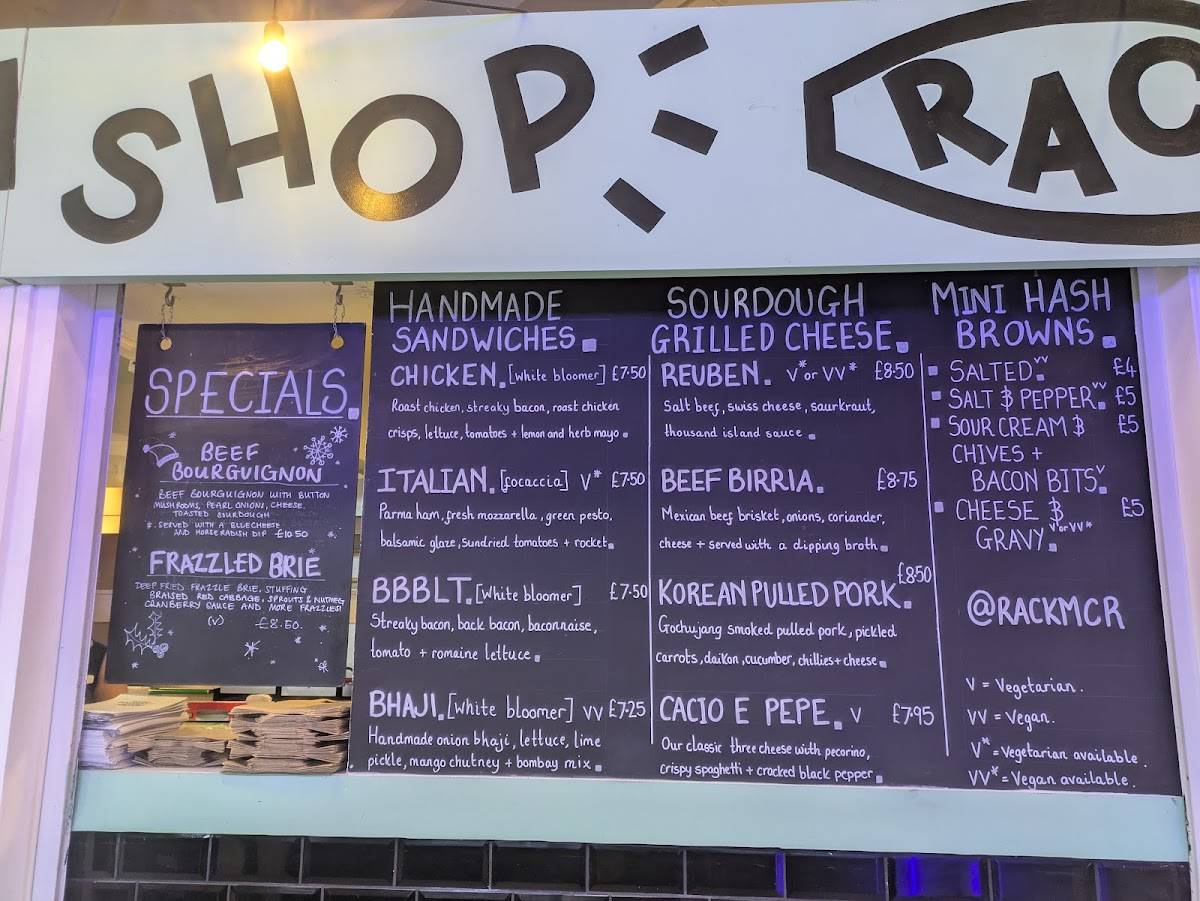 SHOP
RAC
SPECIALS.
BEEF
BOURGUIGNON
BEEF BOURGUIGNON WITH BUTTON
MUSHROOMS, PEARL ONIONS, CHEESE,
TOASTED SOURDOUGH
SERVED WITH A BLUECHEESE
AND HORSERADISH DIP £10.50
FRAZZLED BRIE
DEEP FRIED FRAZZLE BRIE, STUFFING,
BRAISED RED CABBAGE, SPROUTS & NUTMEG,
CRANBERRY SAUCE AND MORE FRAZZLES!
(V) £8.50.
HANDMADE
SANDWICHES.
CHICKEN. [White bloomer] £7.50
Roast chicken, streaky bacon, roast chicken
crisps, lettuce, tomatoes + lemon and herb mayo.
ITALIAN. [focaccia] V* £7.50
Parma ham, fresh mozzarella, green pesto,
balsamic glaze, sundried tomatoes + rocket.
BBBLT. [White bloomer] £7.50
Streaky bacon, back bacon, baconnaise,
tomato + romaine lettuce.
BHAJI. [White bloomer] VV £7.25
Handmade onion bhaji, lettuce, lime
pickle, mango chutney + bombay mix.
SOURDOUGH
GRILLED CHEESE.
REUBEN. V* or VV* £8.50
Salt beef, swiss cheese, saurkraut,
thousand island sauce.
BEEF BIRRIA. £8.75
Mexican beef brisket, onions, coriander,
cheese + served with a dipping broth.
KOREAN PULLED PORK. £8.50
Gochujang smoked pulled pork, pickled
carrots, daikon, cucumber, chillies + cheese.
CACIO E PEPE. V £7.95
Our classic three cheese with pecorino,
crispy spaghetti + cracked black pepper.
MINI HASH
BROWNS.
SALTED. VV £4
SALT & PEPPER. VV £5
SOUR CREAM & £5
CHIVES +
BACON BITS. V
CHEESE & £5
GRAVY. V or VV*
@RACKMCR
V = Vegetarian.
VV = Vegan.
V* = Vegetarian available.
VV* = Vegan available.